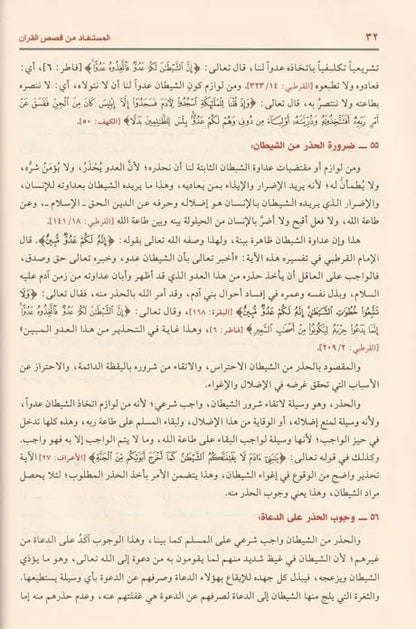 ٣٢ المستفاد من قصص القرآن
تشريعياً تكليفياً باتخاذه عدواً لنا، قال تعالى: ﴿إِنَّ الشَّيْطَانَ لَكُمْ عَدُوٌّ فَاتَّخِذُوهُ عَدُوًّا﴾ [فاطر: ٦]، أي:
فعادوه ولا تطيعوه [القرطبي: ٣٢٣/١٤]. ومن لوازم كون الشيطان عدواً لنا أن لا نتولاه، أي: لا ننصره
بطاعته ولا ننتصر به، قال تعالى: ﴿وَإِذْ قُلْنَا لِلْمَلَائِكَةِ اسْجُدُوا لِآدَمَ فَسَجَدُوا إِلَّا إِبْلِيسَ كَانَ مِنَ الْجِنِّ فَفَسَقَ عَنْ
أَمْرِ رَبِّهِ أَفَتَتَّخِذُونَهُ وَذُرِّيَّتَهُ أَوْلِيَاءَ مِن دُونِي وَهُمْ لَكُمْ عَدُوٌّ بِئْسَ لِلظَّالِمِينَ بَدَلًا﴾ [الكهف: ٥٠].
٥٥ ــ ضرورة الحذر من الشيطان:
ومن لوازم أو مقتضيات عداوة الشيطان الثابتة لنا أن نحذره؛ لأن العدو يُحْذَرُ، ولا يُؤْمَنُ شره،
ولا يُطمأنُ له؛ لأنه يريد الإضرار والإيذاء بمن يعاديه، وهذا ما يريده الشيطان بعداوته للإنسان،
والإضرار الذي يريده الشيطان بالإنسان هو إضلاله وحرفه عن الدين الحق ـ الإسلام ـ، وعن
طاعة الله، ولا فعل أقبح ولا أضرَّ بالإنسان من الحيلولة بينه وبين طاعة الله [القرطبي: ١٤١/١٨].
هذا وإن عداوة الشيطان ظاهرة بينة، ولهذا وصفه الله تعالى بقوله: ﴿إِنَّهُ لَكُمْ عَدُوٌّ مُّبِينٌ﴾. قال
الإمام القرطبي في تفسيره هذه الآية: «أخبر تعالى بأن الشيطان عدو، وخبره تعالى حق وصدق،
فالواجب على العاقل أن يأخذ حذره من هذا العدو الذي قد ظهر وأبان عداوته من زمن آدم عليه
السلام، وبذل نفسه وعمره في إفساد أحوال بني آدم، وقد أمر الله بالحذر منه، فقال تعالى: ﴿وَلَا
تَتَّبِعُوا خُطُوَاتِ الشَّيْطَانِ إِنَّهُ لَكُمْ عَدُوٌّ مُّبِينٌ﴾ [البقرة: ١٦٨]، وقال تعالى: ﴿إِنَّ الشَّيْطَانَ لَكُمْ عَدُوٌّ فَاتَّخِذُوهُ عَدُوًّا
إِنَّمَا يَدْعُو حِزْبَهُ لِيَكُونُوا مِنْ أَصْحَابِ السَّعِيرِ﴾ [فاطر: ٦]، وهذا غاية في التحذير من هذا العدو المبين»
[القرطبي: ٢٠٩/٢].
والمقصود بالحذر من الشيطان الاحتراس، والاتقاء من شروره باليقظة الدائمة، والاحتراز عن
الأسباب التي تحقق غرضه في الإضلال والإغواء.
والحذر، وهو وسيلة لاتقاء شرور الشيطان، واجب شرعي؛ لأنه من لوازم اتخاذ الشيطان عدواً،
ولأنه وسيلة لمنع إضلاله، أو الوقاية من هذا الإضلال، ولبقاء المسلم على طاعة ربه، وهذه كلها تدخل
في حيز الواجب؛ لأنها وسيلة لواجب البقاء على طاعة الله، وما لا يتم الواجب إلا به فهو واجب.
وكذلك في قوله تعالى: ﴿يَا بَنِي آدَمَ لَا يَفْتِنَنَّكُمُ الشَّيْطَانُ كَمَا أَخْرَجَ أَبَوَيْكُم مِّنَ الْجَنَّةِ﴾ [الأعراف: ٢٧] الآية
تحذير واضح من الوقوع في إغواء الشيطان، وهذا يتضمن الأمر بأخذ الحذر المطلوب؛ لئلا يحصل
مراد الشيطان، وهذا يعني وجوب الحذر منه.
٥٦ ــ وجوب الحذر على الدعاة:
والحذر من الشيطان واجب شرعي على المسلم كما بينا، وهذا الوجوب آكَدُ على الدعاة من
غيرهم؛ لأن الشيطان في غيظ شديد منهم لما يقومون به من دعوة إلى الله تعالى، وهو ما يؤذي
الشيطان ويزعجه، فيبذل كل جهده للإيقاع بهؤلاء الدعاة وصرفهم عن الدعوة بأي وسيلة يستطيعها.
والثغرة التي يلج منها الشيطان إلى الدعاة لصرفهم عن الدعوة هي غفلتهم عنه، وعدم حذرهم منه إما